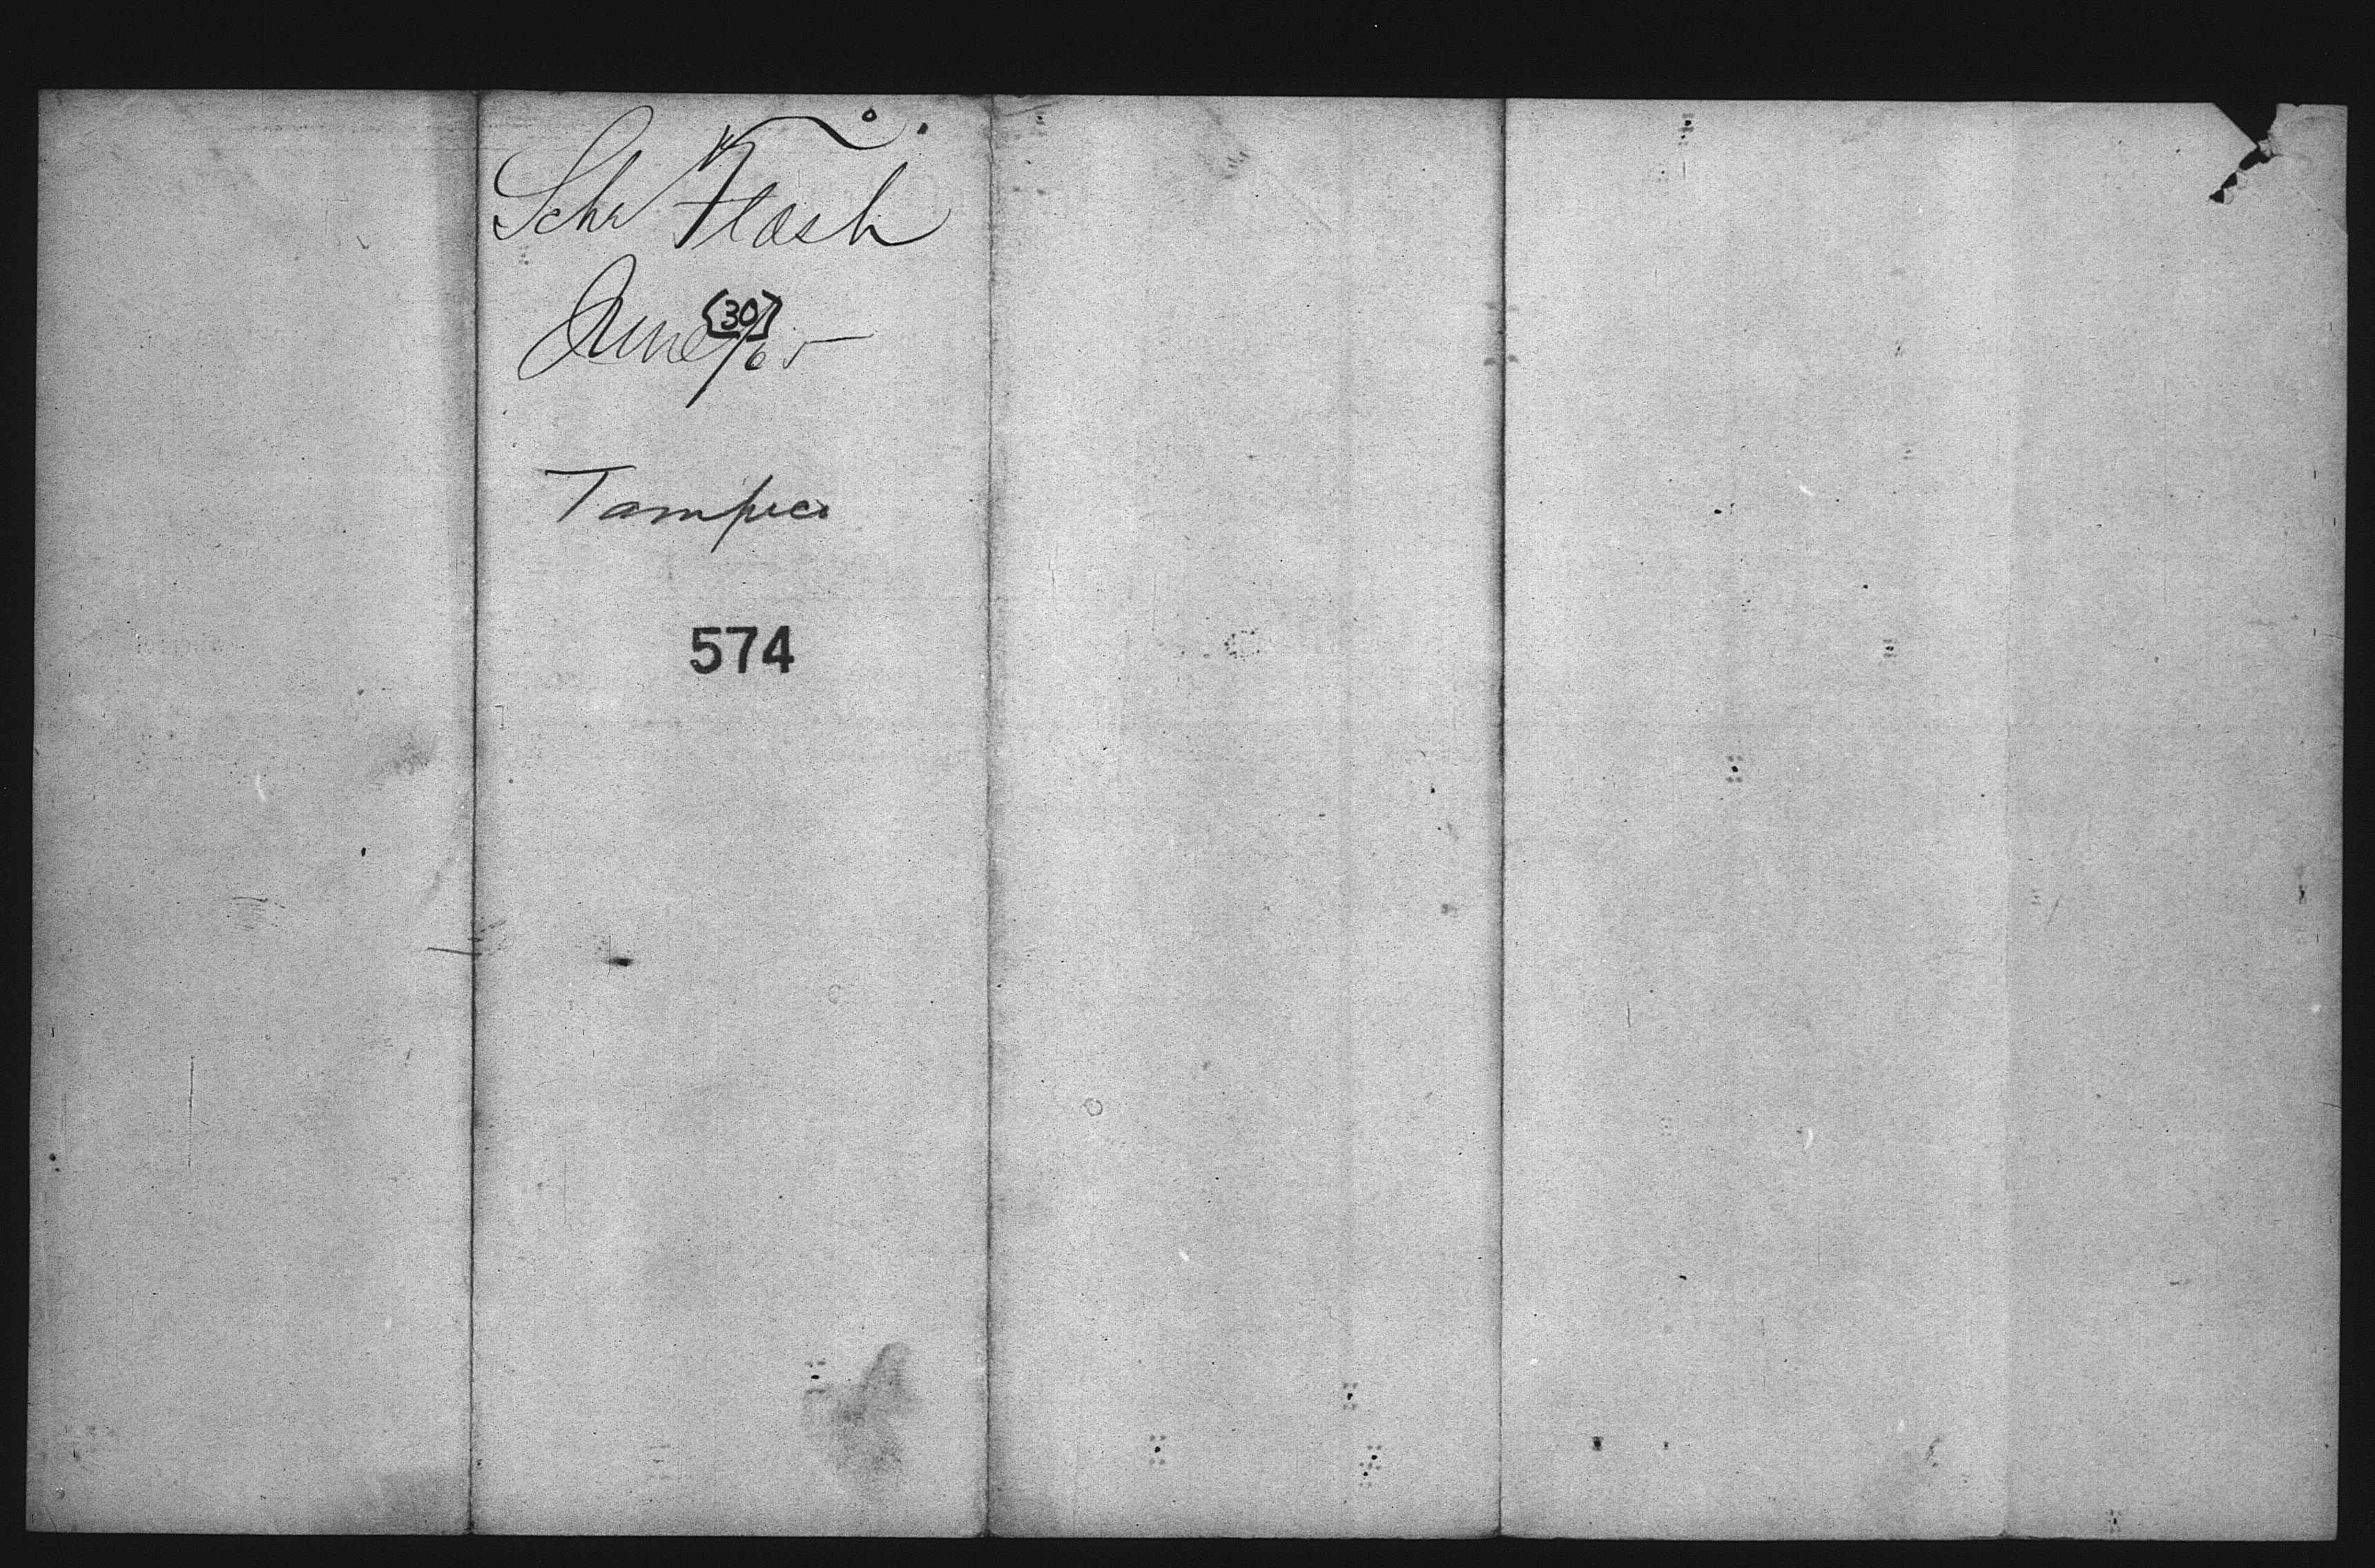 Schr Flash
June [30]/65
Tampico
574